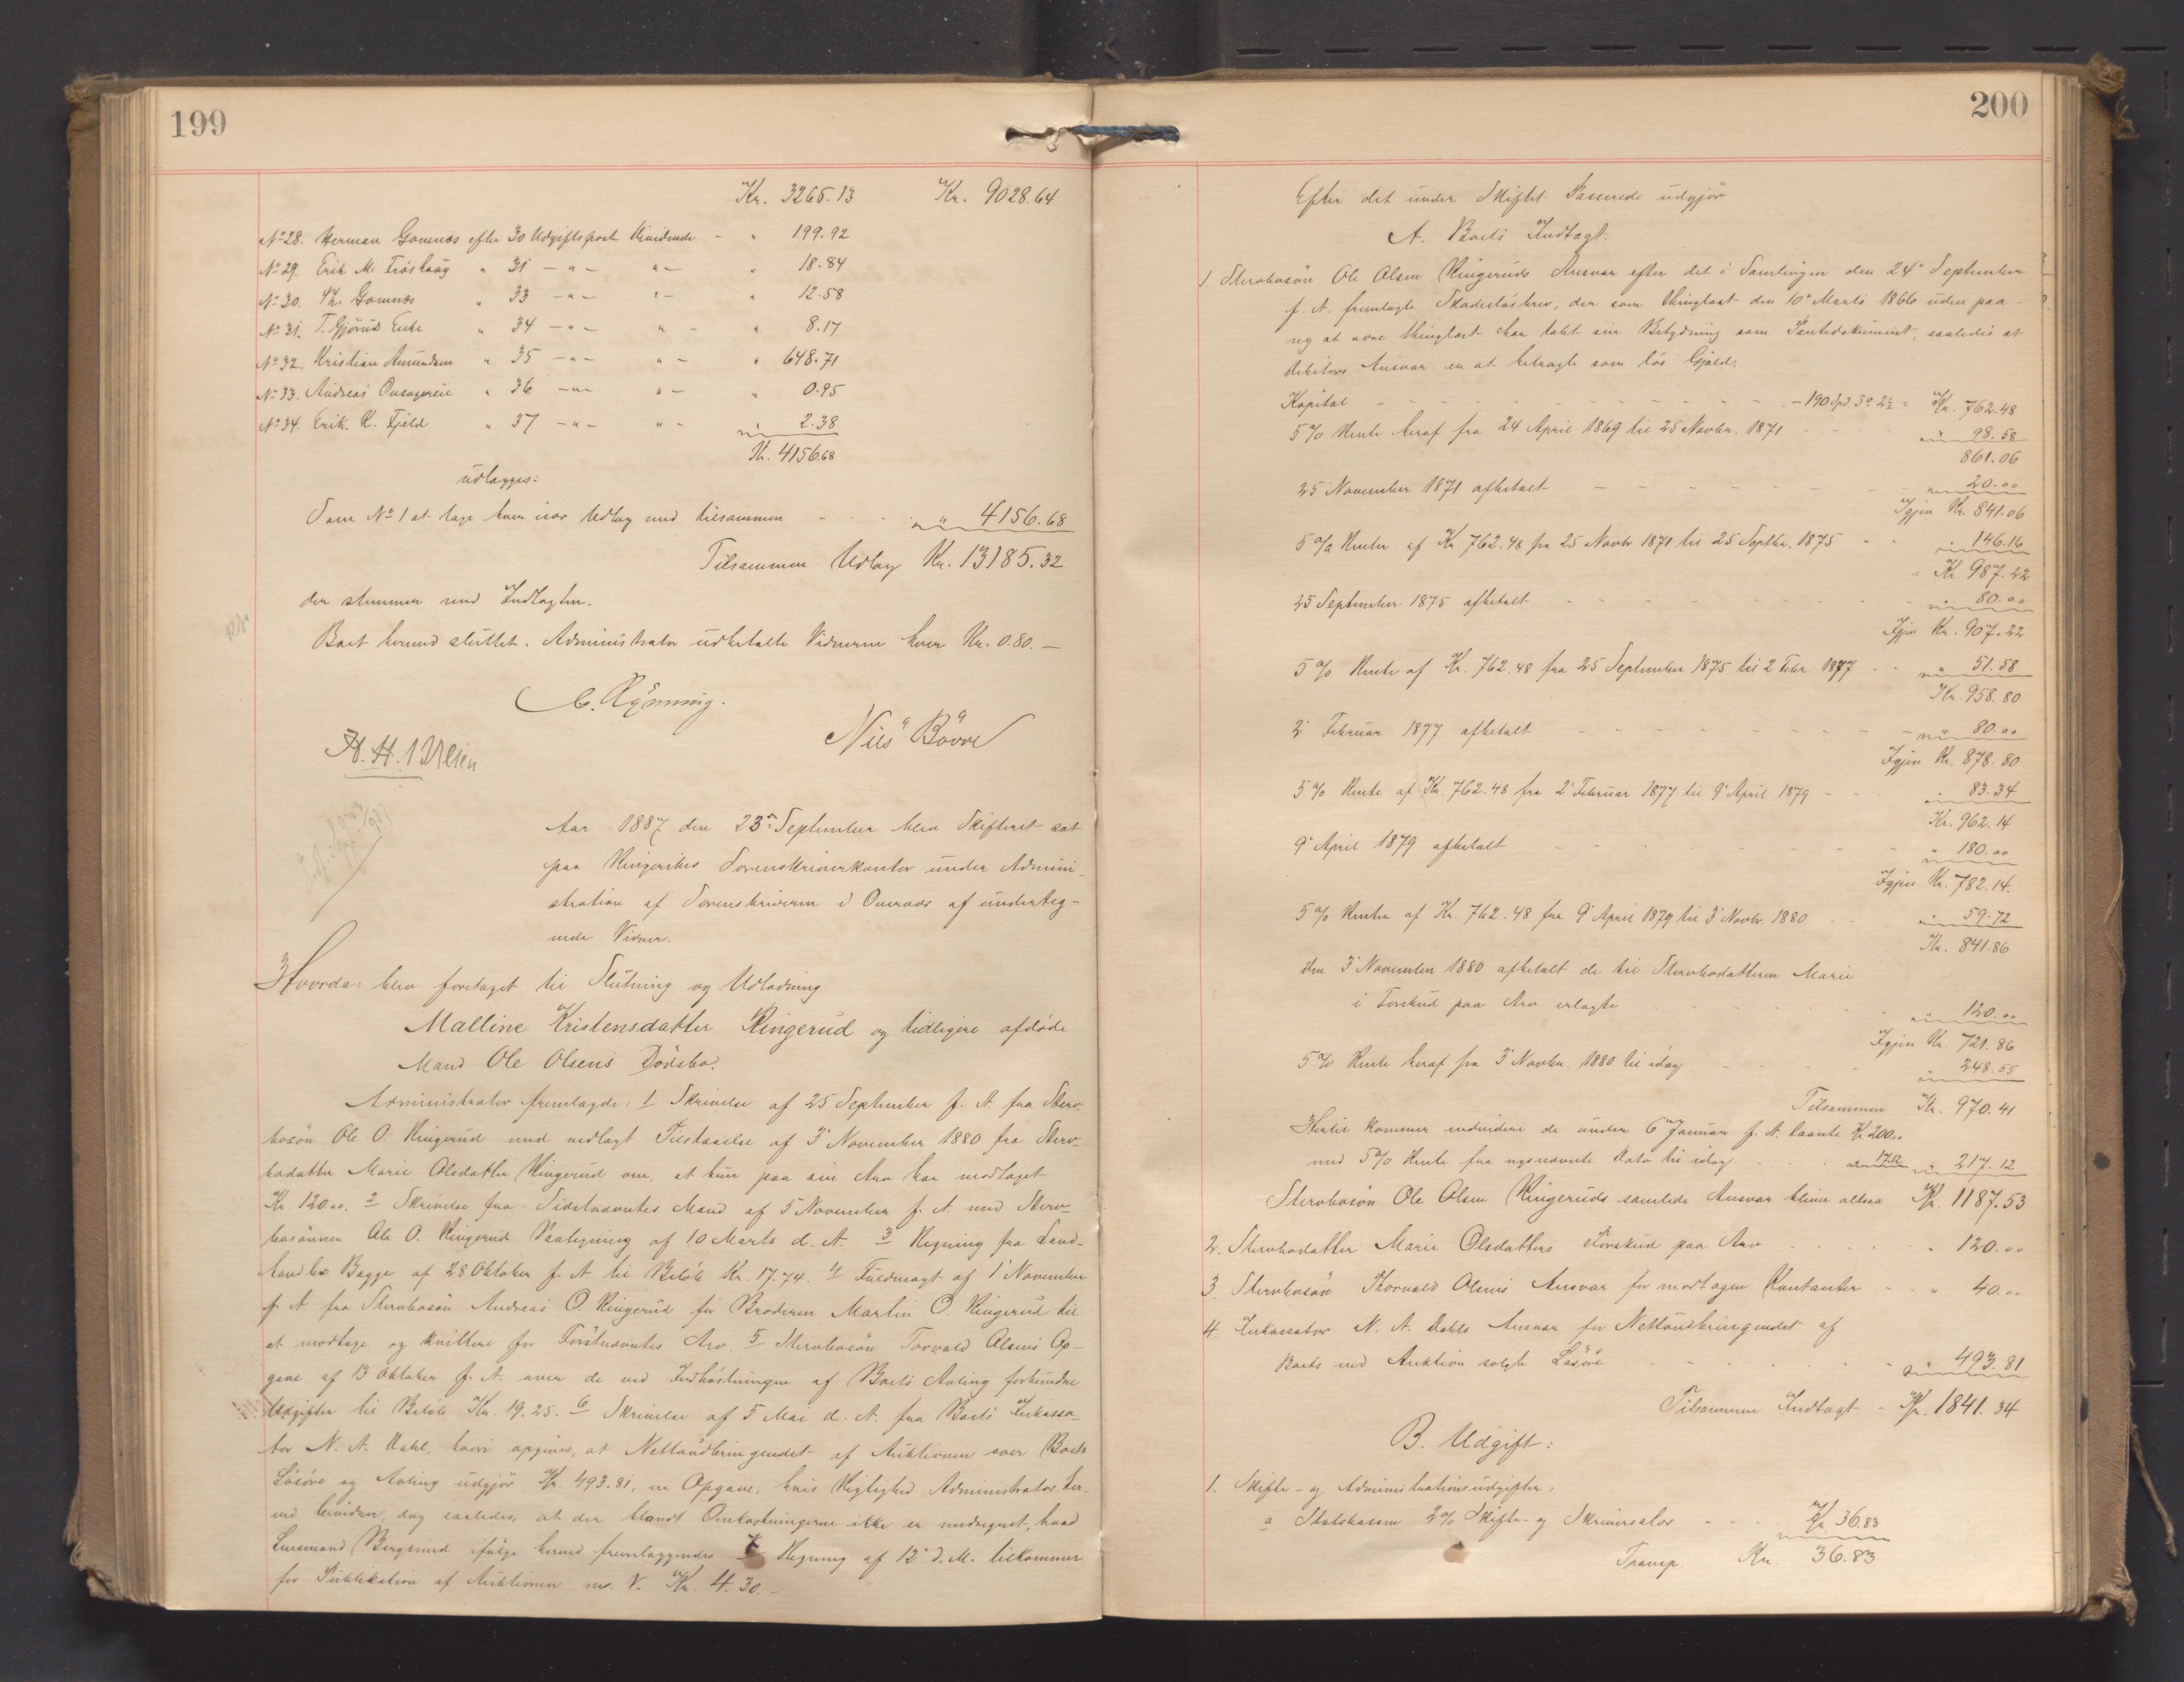 199
Kr. 3265.13 Kr. 9028.64
No 28. Herman Gomnæs efter 30 Udgiftspost Dividende - " 199.92
No 29. Erik M. Frøshaug " 31 - " - " - " 18.84
No 30. Th. Gomnæs " 33 - " - " - " 12.58
No 31. T. Gjørud Enke " 34 - " - " - " 8.17
No 32. Kristian Amundsen " 35 - " - " - " 648.71
No 33. Andreas Onsagereie " 36 - " - " - " 0.95
No 34. Erik K. Fjeld " 37 - " - " - " 2.38
Kr. 4156.68
udlægges:
Som No 1 at tage hver især Udlæg med tilsammen - - - " 4156.68
Tilsammen Udlæg Kr. 13185.32
der stemmer med Indtægten.
Boet hermed sluttet. Administrator udbetalte Vidnerne hver Kr. 0.80. -
C. Rynning.
Nils Bövre
H. H. Veien
Aar 1887 den 23de September blev Skifteret sat
paa Ringerikes Sorenskriverkontor under Admini-
stration af Sorenskriveren i Overvær af underteg-
nede Vidner.
Hvorda: blev foretaget til Slutning og Udlodning
Malline Kristensdatter Ringerud og tidligere afdøde
Mand Ole Olsens Dødsbo.
Administrator fremlagde: 1 Skrivelse af 25 September f. A. fra Sterv-
bosøn Ole O. Ringerud med vedlagt Tilstaaelse af 3' November 1880 fra Sterv-
bodatter Marie Olsdatter Ringerud om, at hun paa sin Arv har modtaget
Kr. 120.00. 2 Skrivelse fra Sidstnævntes Mand af 5 November f. A. med Sterv-
bosønnen Ole O. Ringerud Paategning af 10 Marts d. A. 3 Regning fra Land-
handler Bagge af 28 Oktober f. A. til Beløb Kr. 17.74. 4 Fuldmagt af 1' November
f. A. fra Stervbosøn Andreas O. Ringerud for Broderen Martin O. Ringerud til
at modtage og kvittere for Førstnævntes Arv. 5 Stervbosøn Torvald Olsens Op-
gave af 13 Oktober f. A. over de ved Indhøstningen af Boets Avling forbundne
Udgifter til Beløb Kr. 19.25. 6 Skrivelse af 5 Mai d. A. fra Boets Inkassa-
tor N. A. Dahl, hvori opgives, at Nettoudbringendet af Auktionen over Boets
Løsøre og Avling udgjør Kr. 493.81, en Opgave, hvis Rigtighed Administrator her-
ved bevidner, dog saaledes, at der blandt Omkostningerne ikke er medregnet, hvad
Lensmand Bergsund ifølge herved fremlæggendes 7 Regning af 12' d. M. tilkommer
for Publikation af Auktionen m. V. Kr. 4.30. -
200
Efter det under Skiftet Passerede udgjør
A. Boets Indtægt.
1. Stervbosøn Ole Olsen Ringeruds Ansvar efter det i Samlingen den 24' September
f. A. fremlagte Skadesløsbrev, der som thinglæst den 10' Marts 1866 uden paa-
ny at være thinglæst har tabt sin Betydning som Pantedokument, saaledes at
Debitors Ansvar er at betragte som løs Gjæld.
Kapital - - - 190 Spd. 3 o 2 s = Kr. 762.48
5% Rente heraf fra 24 April 1869 til 25 Novbr. 1871 - - " 98.58
861.06
25 November 1871 afbetalt - - - " 20.00
Igjen Kr. 841.06
5% Renter af Kr. 762.48 fra 25 Novbr. 1871 til 25 Septbr. 1875 - - " 146.16
Kr. 987.22
25 September 1875 afbetalt - - - " 80.00
Igjen Kr. 907.22
5% Rente af Kr. 762.48 fra 25 September 1875 til 2 Febr. 1877 - - " 51.58
Kr. 958.80
2' Februar 1877 afbetalt - - - " 80.00
Igjen Kr. 878.80
5% Rente af Kr. 762.48 fra 2' Februar 1877 til 9' April 1879 - - " 83.34
Kr. 962.14
9' April 1879 afbetalt - - - " 180.00
Igjen Kr. 782.14.
5% Renter af Kr. 762.48 fra 9' April 1879 til 3' Novbr. 1880 - - " 59.72
Kr. 841.86
Den 3' November 1880 afbetalt de til Stervbodatteren Marie
i Forskud paa Arv erlagte - - - " 120.00
Igjen Kr. 721.86
5% Rente heraf fra 3' Novbr. 1880 til idag - - - " 248.55
Tilsammen Kr. 970.41
Hertil kommer endvidere de under 6 Januar f. A. laante Kr. 200.00
med 5% Rente fra nysnævnte Dato til idag - - 17.12 " 217.12
Stervbosøn Ole Olsen Ringeruds samlede Ansvar bliver altsaa Kr. 1187.53
2. Stervbodatter Marie Olsdatters Forskud paa Arv - - - " 120.00
3. Stervbosøn Thorvald Olsens Ansvar for modtagne Kontanter - - " 40.00
4. Inkassator N. A. Dahls Ansvar for Nettoudbringendet af
Boets ved Auktion solgte Løsøre - - - " 493.81
Tilsammen Indtægt - Kr. 1841.34
B. Udgift:
1. Skifte- og Administrationsudgifter:
a Statskassen 2% Skifte- og Skriversalær - - - Kr. 36.83
Transp. Kr. 36.83